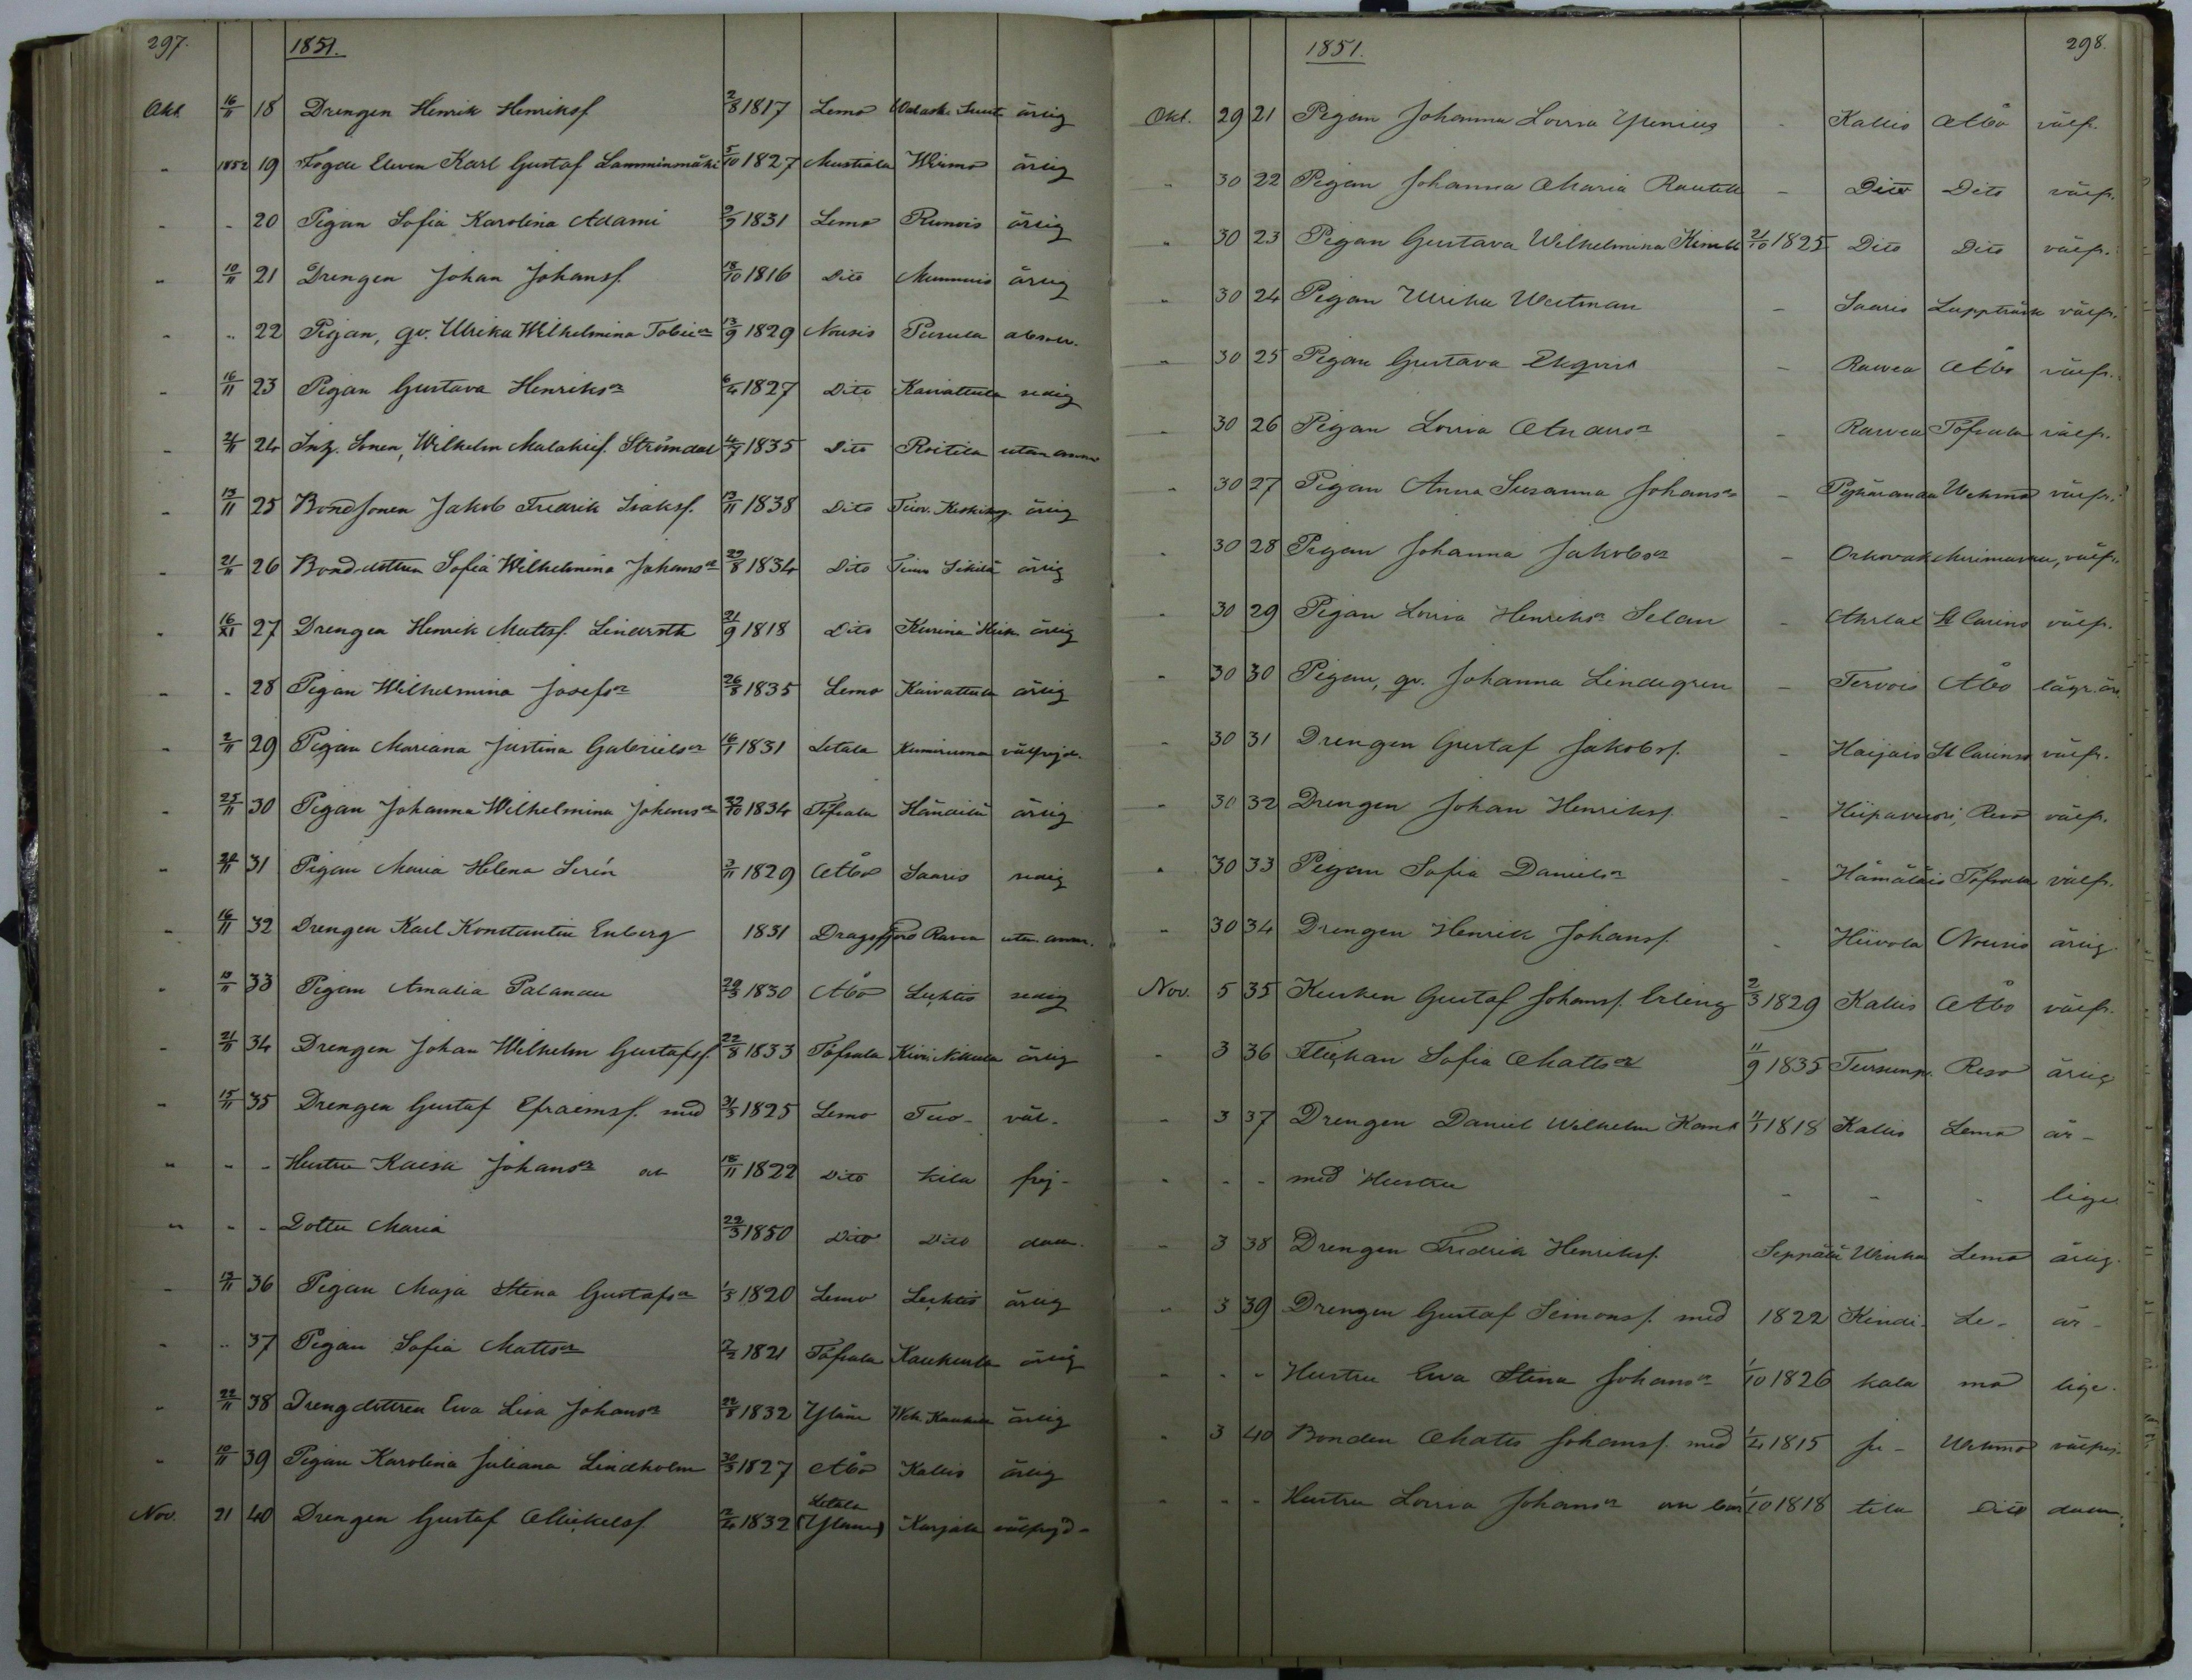 297.
1851.
Okt. 16/11 18 Drengen Henrik Henriksf 2/8 1817 Lemo ärlig
" 1852 19 Fogde Eleven Karl Gustaf Lamminmäki 5/10 1827 Mustiala Wirmo ärlig
" " 20 Pigan Sofia Karolina Adami 1831 Lemo Runois ärlig
" 10/11 21 Drengen Johan Johansf. 18/10 1816 Dito ärlig
" " 22 Pigan, qv. Ulrika Wilhelmina 13/9 1829 Nousis Pursula
" 16/11 23 Pigan Gustava Henriksr 6/4 1827 Dito Kaivattula sedig
" 21/11 24 Sonen, Wilhelm Strömdal 1835 Dito Roitila utan anm
" 13/11 25 Bondsonen Jakob Fredrik Isaksf. 13/11 1838 Dito ärlig
" 21/11 26 Bonddottren Sofia Wilhelmina Johansr 29/8 1834 Dito ärlig
" 16/XI 27 Drengen Henrik Mattsf. Lindroth 21/9 1818 Dito Kurina ärlig
" " 28 Pigan Wilhelmina Josefsr 26/3 1835 Lemo Kaivattula ärlig
" 2/11 29 Pigan Mariana Justina Gabrielsr 16/1 1831 Letala välfrejd.
" 25/11 30 Pigan Johanna Wilhelmina Johansr 1834 Töfsala Händilä ärlig
" 31 Pigan Maria Helena Serén 1829 Åbo Saaris sedig
" 16/11 32 Drengen Karl Konstantin Enberg 1831 Dragsfjerd utan anm.
" 33 Pigan Amalia Palander 29/3 1830 Åbo Lechtis sedig
" 34 Drengen Johan Wilhelm Gustafsf. 22/8 1833 Töfsala Kivi Nikula ärlig
" 15/11 35 Drengen Gustaf Efraimsf. med 1825 Lemo Tuo- väl-
" " - Hustru Kaisa Johansr och 18/11 1822 Dito kila frej-
" " - Dotter Maria 22/3 1850 Dito Dito dade.
" 36 Pigan Maja Stina Gustafsr 1/3 1820 Lemo Lechtis ärlig
" " 37 Pigan Sofia Mattsr 1821 Töfsala ärlig
" 22/11 38 Drengdottren Ewa Lisa Johansr 22/8 1832 Yläne ärlig
" 10/11 39 Pigan Karolina Juliana Lindholm 1827 Åbo Kallis ärlig
Nov. 21 40 Drengen Gustaf Mickelsf. 2/4 1832 Letala (Yläne) Karjala välfrejd-
1851.
298.
Okt. 29 21 Pigan Johanna Lovisa - Kallis Åbo välfr.
" 30 22 Pigan Johanna Maria - Dito Dito välfr.
" 30 23 Pigan Gustava Wilhelmina 21/10 1825 Dito Dito välfr.
" 30 24 Pigan Ulrika Westman - Saaris välfr.
" 30 25 Pigan Gustava Ekqvist - Åbo välfr.
" 30 26 Pigan Lovisa - Töfsala välfr.
" 30 27 Pigan Anna Susanna Johansr - Wehmo välfr.
" 30 28 Pigan Johanna Jakobsr - välfr.
" 30 29 Pigan Lovisa Henriksr Selan - St Carins välfr.
" 30 30 Pigan, qv. Johanna Lindegren - Tervois Åbo
" 30 31 Drengen Gustaf Jakobsf. - Haijais St Carins välfr.
" 30 32 Drengen Johan Henriksf. - Hiipavuori, Reso välfr.
" 30 33 Pigan Sofia Danielsr - Hämäläis Töfsala välfr.
" 30 34 Drengen Henrik Johansf. - Hiivola Nousis ärlig.
Nov. 5 35 Kusken Gustaf Johansf. Erling 2/3 1829 Kallis Åbo välfr.
" 3 36 Flickan Sofia Mattsr 11/9 1835 Tursunp. Reso ärlig
" 3 37 Drengen Daniel Wilhelm 11/1 1818 Kallis Lemo är-
" - - med Hustru - - - lige
" 3 38 Drengen Fredrik Henriksf. Seppälä Lemo ärlig.
" 3 39 Drengen Gustaf Simonsf. med 1822 Kindi- Le- är-
" - - Hustru Ewa Stina Johansr 1/10 1826 kala mo lige.
" 3 40 Bonden Matts Johansf. med 1/4 1815 Wehmo välfrej-
" - - Hustru Lovisa Johansr 1/10 1818 tila Dito dade.